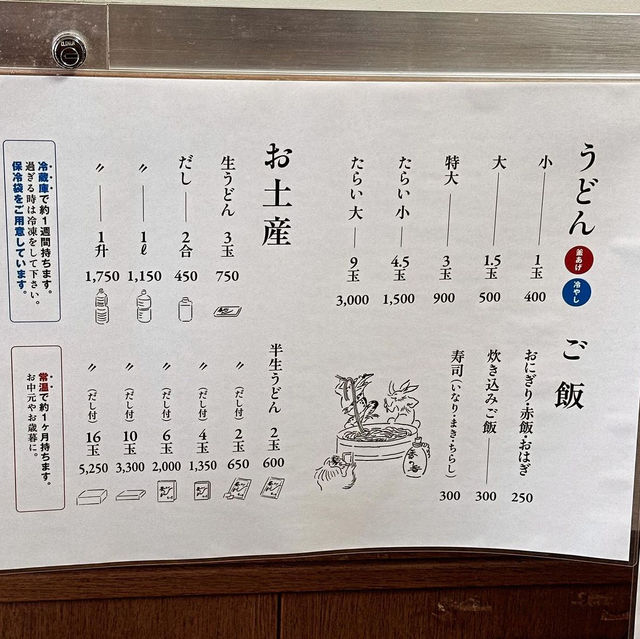 うどん
釜あげ
冷やし
小 1玉 400
大 1.5玉 500
特大 3玉 900
たらい小 4.5玉 1,500
たらい大 9玉 3,000
ご飯
おにぎり・赤飯・おはぎ 250
炊き込みご飯 300
寿司(いなり・まき・ちらし) 300
お土産
生うどん 3玉 750
だし 2合 450
〃 1ℓ 1,150
〃 1升 1,750
冷蔵庫で約1週間持ちます。
過ぎる時は冷凍をして下さい。
保冷袋をご用意しています。
半生うどん 2玉 600
〃(だし付) 2玉 650
〃(だし付) 4玉 1,350
〃(だし付) 6玉 2,000
〃(だし付) 10玉 3,300
〃(だし付) 16玉 5,250
常温で約1ヶ月持ちます。
お中元やお歳暮に。